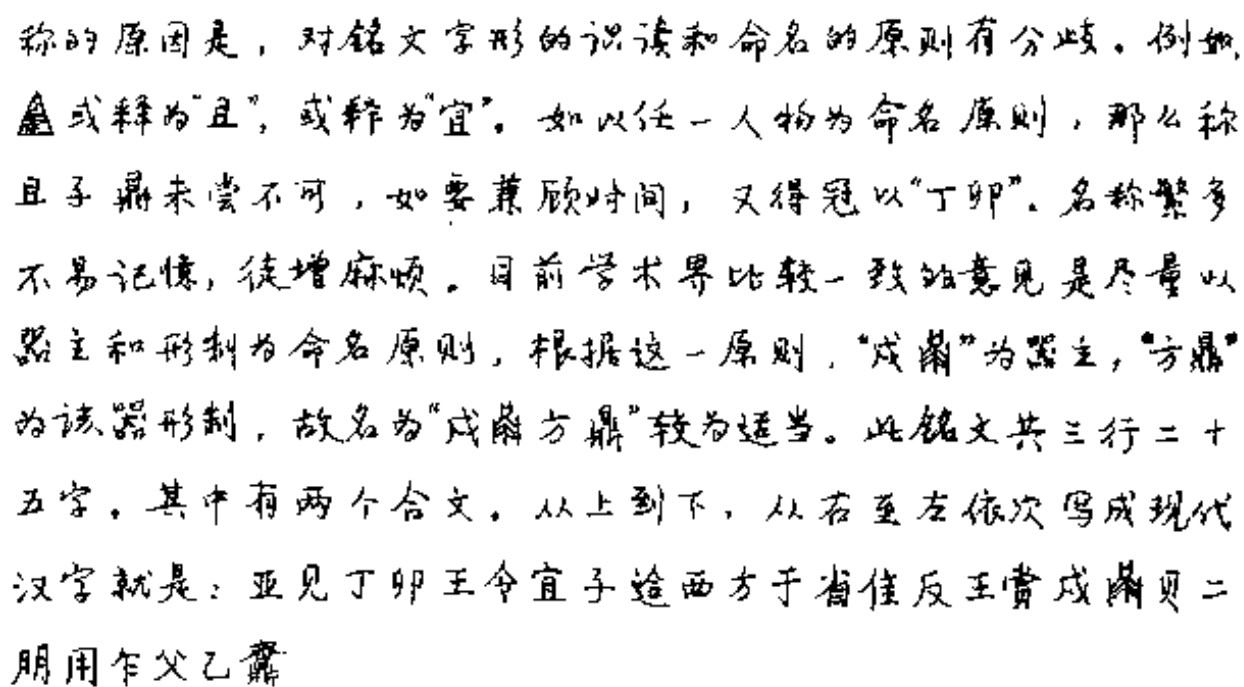 称的原因是，对铭文字形的识读和命名的原则有分歧。例如，
或释为“且”，或释为“宜”。如以任一人物为命名原则，那么称
且子鼎未尝不可，如要兼顾时间，又得冠以“丁卯”。名称繁多
不易记忆，徒增麻烦。目前学术界比较一致的意见是尽量以
器主和形制为命名原则，根据这一原则，“戍”为器主，“方鼎”
为该器形制，故名为“戍方鼎”较为适当。此铭文共三行二十
五字。其中有两个合文。从上到下，从右至左依次写成现代
汉字就是：亚见丁卯王令宜子迨西方于省隹反王赏戍贝二
朋用乍父乙